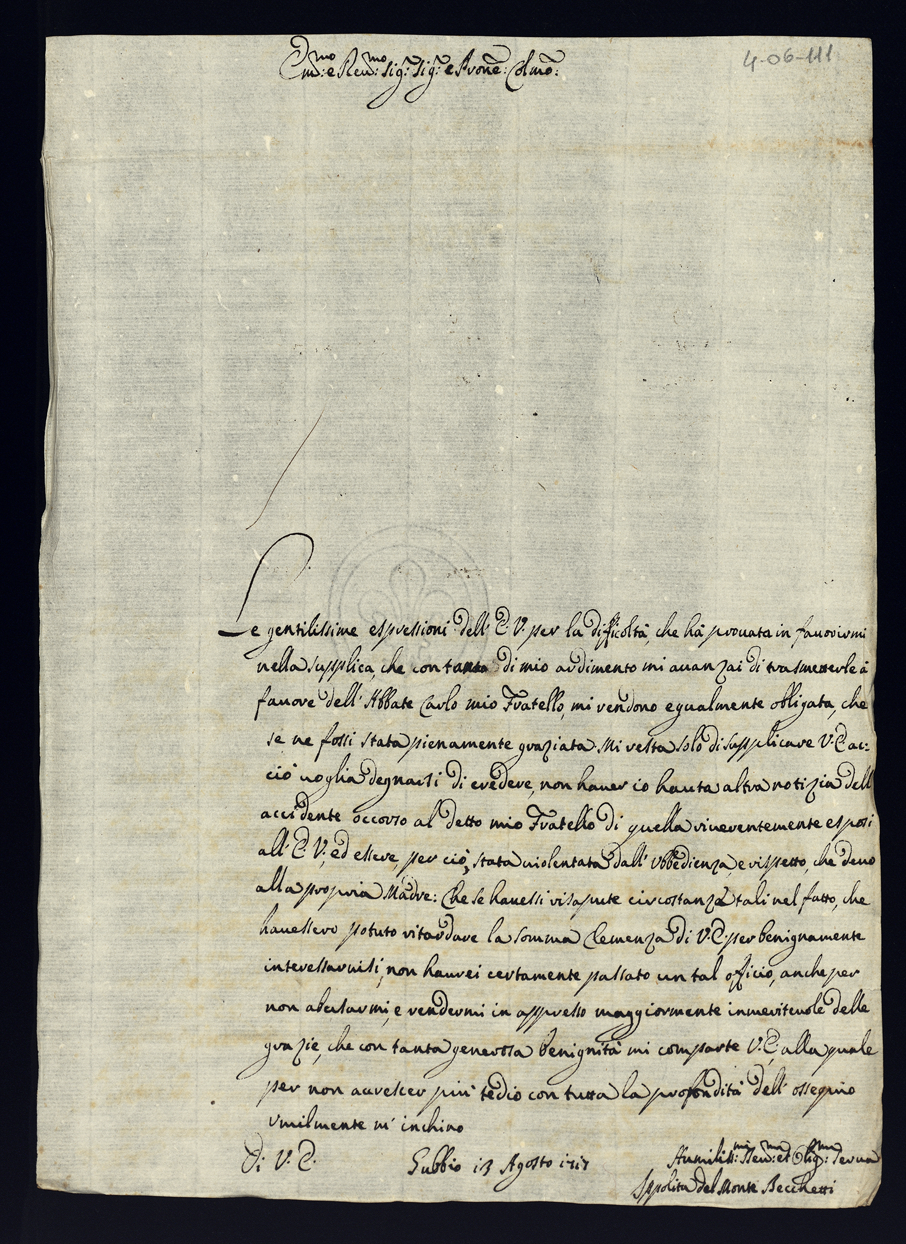 4-06-111
Em:mo e Reu:mo Sig:r Sig:r e Prone: Colmo:
Le gentilissime espressioni dell' E. V. per la difficoltà, che hà prouata in fauorirmi
nella supplica, che con tanto di mio ardimento mi auanzai di trasmetterle à
fauore dell' Abbate Carlo mio Fratello, mi rendono egualmente obligata, che
se ne fossi stata pienamente graziata. Mi resta solo di supplicare V. E. ac=
ciò uoglia degnarsi di credere, non hauer io hauta altra notizia dell
accidente occorso al detto mio Fratello di quella riuerentemente esposi
all' E. V. ed essere, per ciò, stata uiolentata dall' Vbbedienza, e rispetto, che deuo
alla propria Madre: Che se hauessi risapute circostanze tali nel fatto, che
hauessero potuto ritardare la somma Clemenza di V. E. per benignamente
interessaruisi, non haurei certamente passato un tal officio, anche per
non abusarmi, e rendermi in appresso maggiormente immeriteuole delle
grazie, che con tanta generosa benignità mi comparte V. E., alla quale
per non accrescer più tedio con tutta la profondità dell' ossequio
vmilmente m' inchino
Di V. E. Gubbio 13 Agosto 1717 Humiliss:ma Deu:ma et Oblig:ma Serua
Ippolita del Monte Becchetti